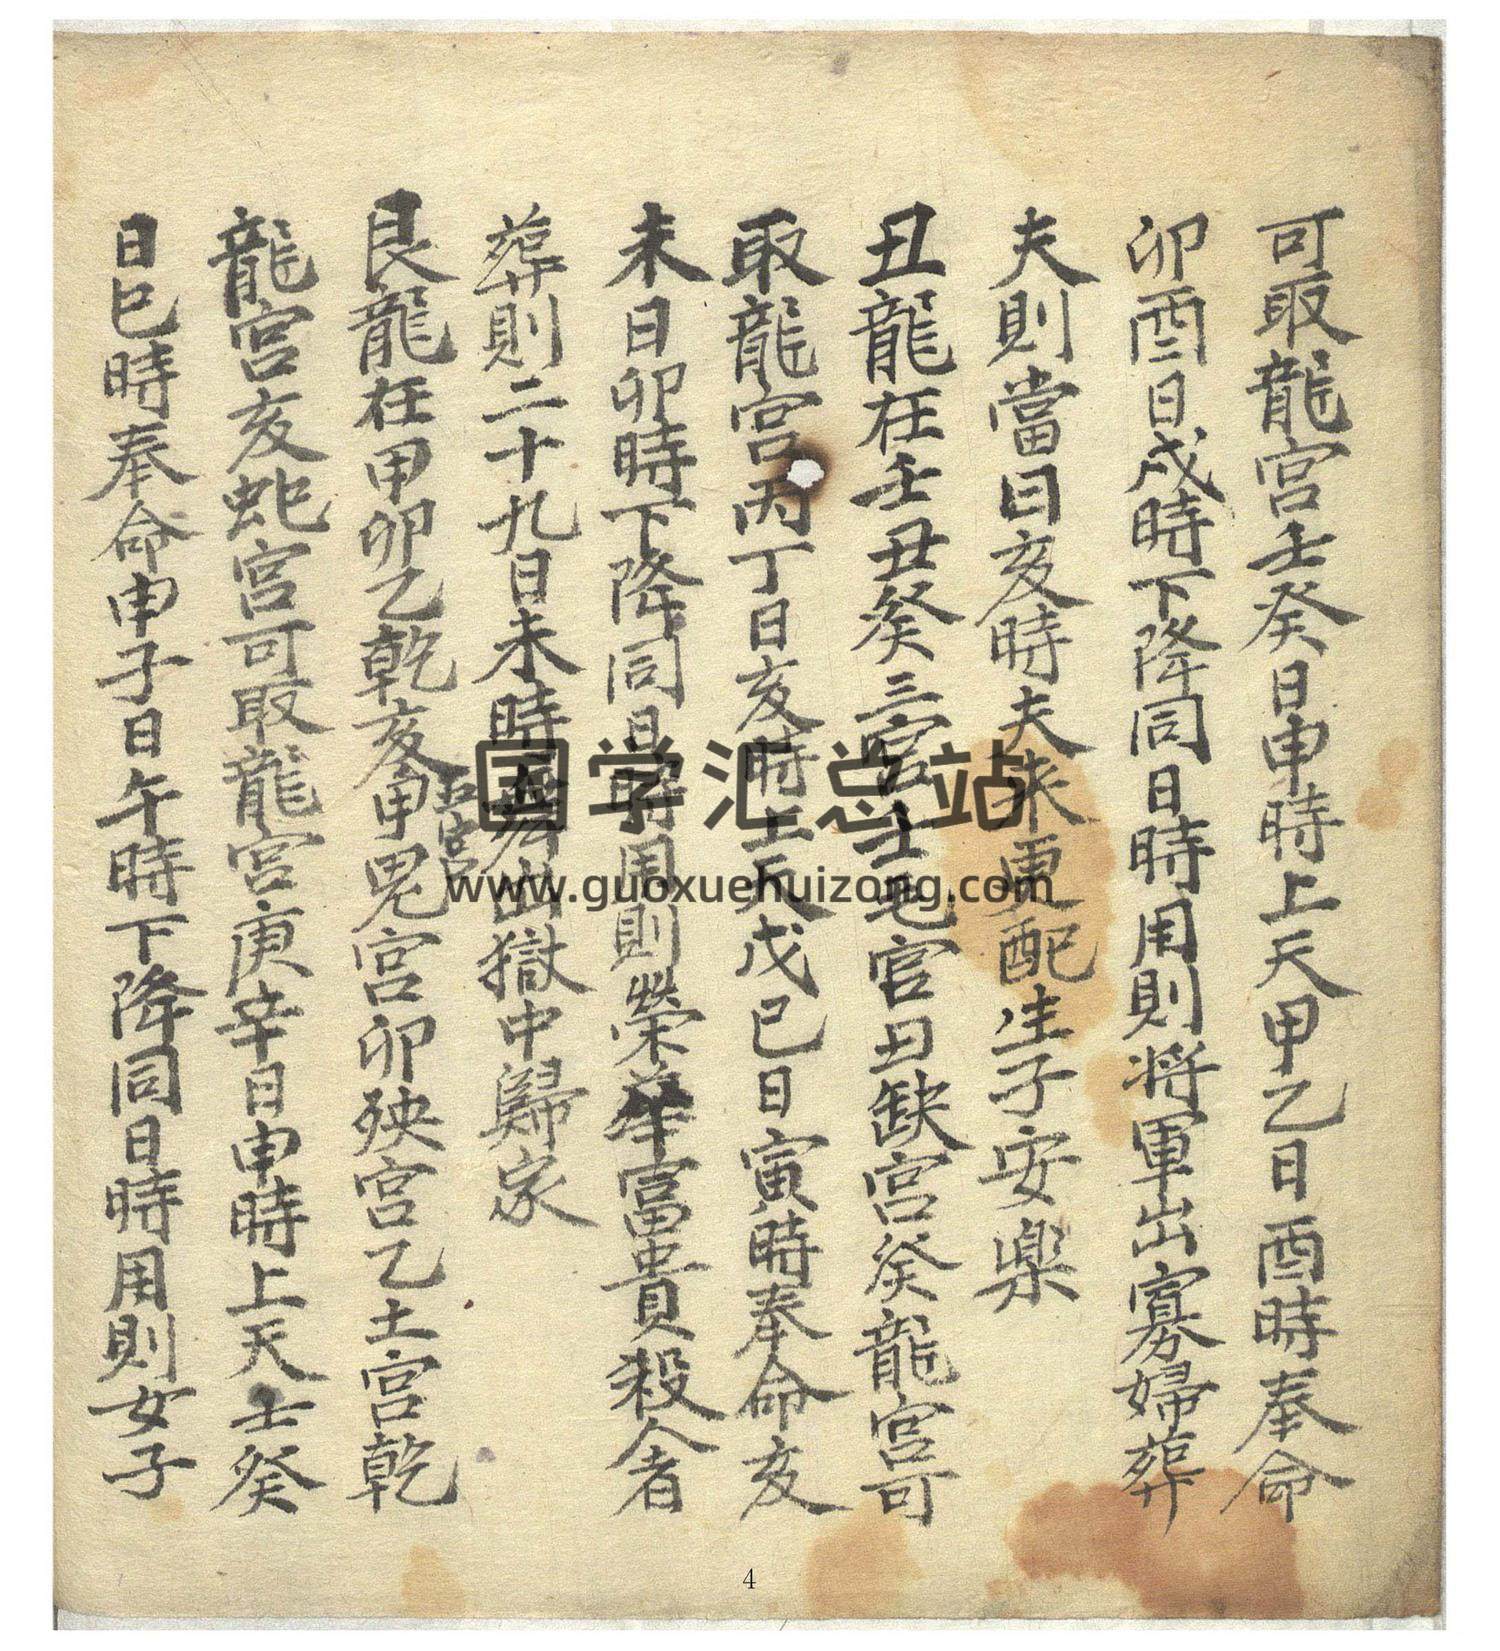 可取龍宮壬癸日申時上天甲乙日酉時奉命
卯酉日戌時下降同日時用則將軍出寡婦葬
夫則當日亥時夫来更配生子安樂
丑龍在壬丑癸三宮壬毛官丑缺宮癸龍宮可
取龍宮丙丁日亥時上天戊已日寅時奉命亥
未日卯時下降同日時用則榮華富貴殺人者
葬則二十九日未時出獄中歸家
艮龍在甲卯乙乾亥五宮甲鬼宮卯殃宮乙土宮乾
龍宮亥蛇宮可取龍宮庚辛日申時上天壬癸
日巳時奉命申子日午時下降同日時用則女子
国学汇总站
www.guoxuehuizong.com
4